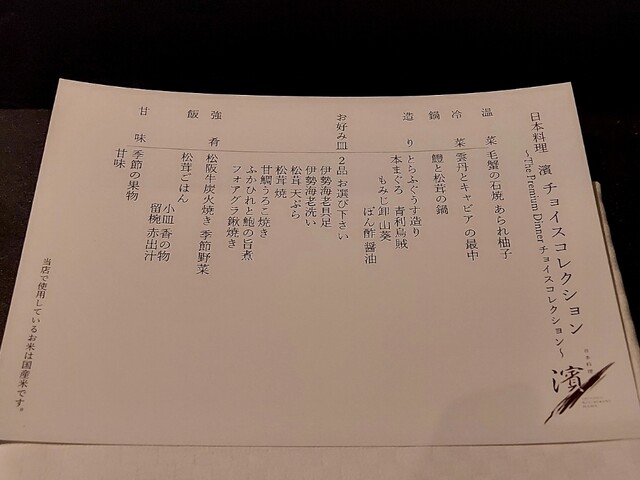 日本料理 濱 チョイスコレクション
~The Premium Dinner チョイスコレクション~
温菜 毛蟹の石焼 あられ柚子
冷菜 雲丹とキャビアの最中
鍋 鱧と松茸の鍋
造り とらふぐうす造り
本まぐろ 青利烏賊
もみじ卸 山葵
ぽん酢 醤油
お好み皿 2品 お選び下さい
伊勢海老具足
伊勢海老洗い
松茸天ぷら
松茸焼
甘鯛うろこ焼き
ふかひれと鮑の旨煮
フォアグラ鍬焼き
強肴 松阪牛炭火焼き 季節野菜
飯 松茸ごはん
小皿 香の物
留椀 赤出汁
甘味 季節の果物
甘味
当店で使用しているお米は国産米です。
日本料理
濱